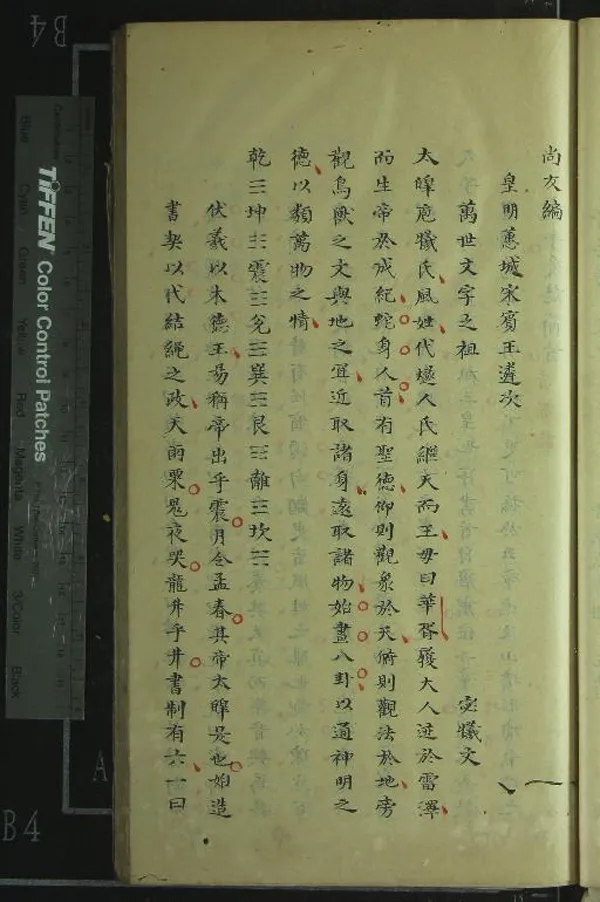 尚友編
皇明蕙城宋賓王遴次
萬世文字之祖 宓犧文
太皡庖犧氏風姓代燧人氏繼天而王母曰華胥履大人迹於雷澤
而生帝於成紀蛇身人首有聖德仰則觀象於天俯則觀法於地旁
觀鳥獸之文與地之宜近取諸身遠取諸物始畫八卦以通神明之
德以類萬物之情
乾☰坤☷震☳兌☱巽☴艮☶離☲坎☵
伏羲以木德王易稱帝出乎震月令孟春其帝太皡是也始造
書契以代結繩之政天雨粟鬼夜哭龍井乎井書制有六一曰
B4
A
B4
TIFFEN Color Control Patches
Blue Cyan Green Yellow Red Magenta White 3/Color Black